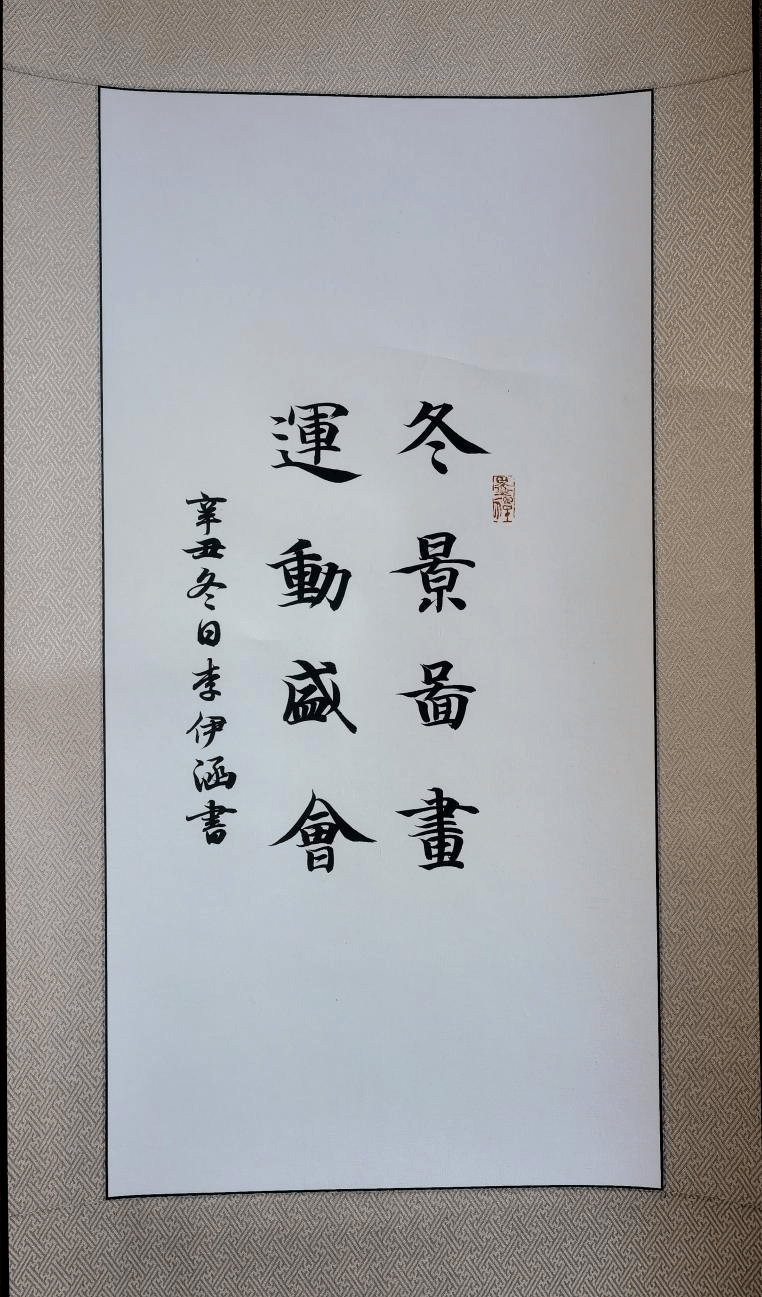 冬景啚畫
運動盛會
辛丑冬日李伊涵书